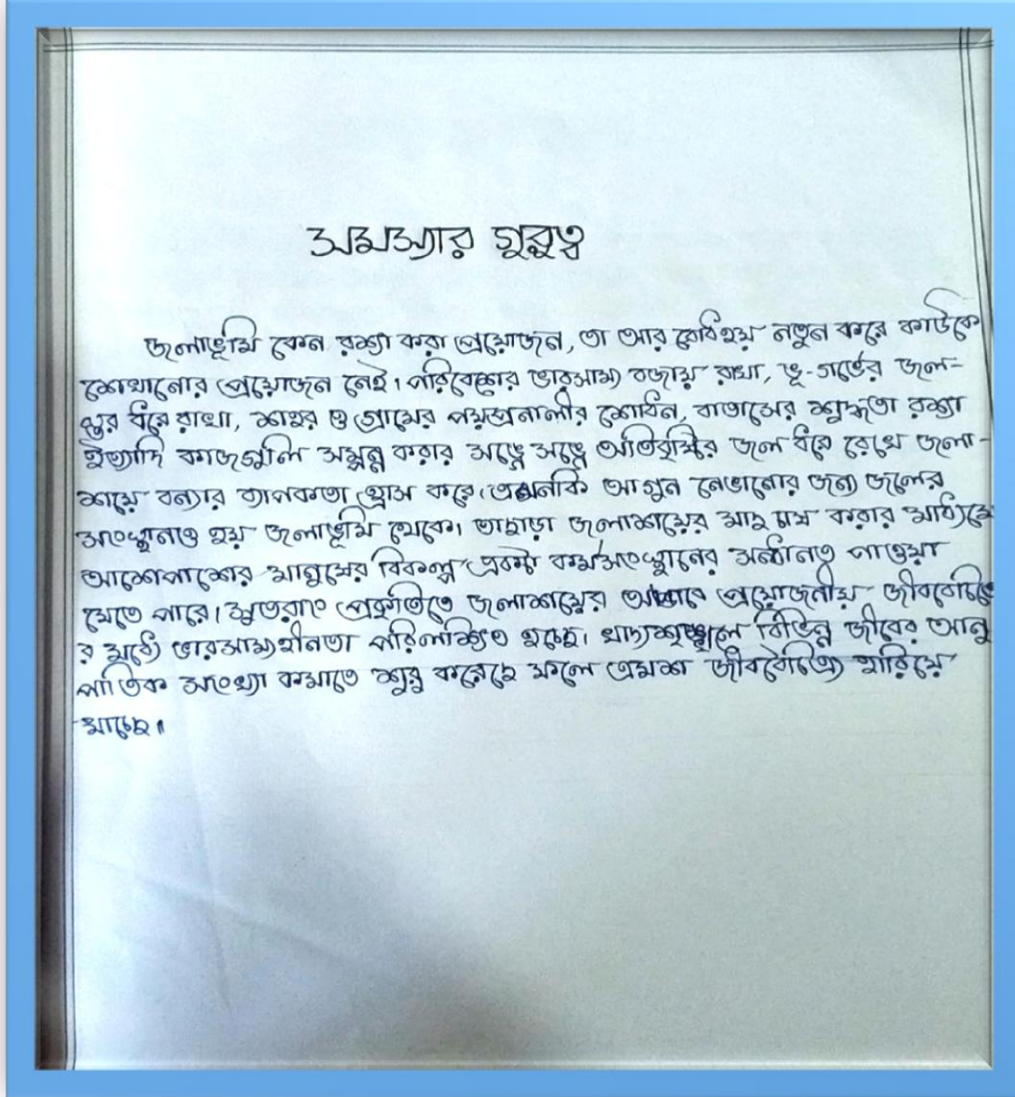 সমস্যার গুরুত্ব
জলাভূমি কেন রক্ষা করা প্রয়োজন, তা আর বোধহয় নতুন করে কাউকে
শেখানোর প্রয়োজন নেই। পরিবেশের ভারসাম্য বজায় রাখা, ভূ-গর্ভের জল-
স্তর ধরে রাখা, শহর ও গ্রামের পয়ঃপ্রনালীর শোধন, বাতাসের শুদ্ধতা রক্ষা
ইত্যাদি কাজগুলি সম্পন্ন করার সঙ্গে সঙ্গে অতিবৃষ্টির জল ধরে রেখে জলা-
শয়ে বন্যার ব্যাপকতা হ্রাস করে। এমনকি আগুন নেভানোর জন্য জলের
সংস্থানও হয় জলাভূমি থেকে। তাছাড়া জলাশয়ের মাছ চাষ করার মাধ্যমে
আশেপাশের মানুষের বিকল্প একটা কর্মসংস্থানের সন্ধানও পাওয়া
যেতে পারে। সুতরাং প্রকৃতিতে জলাশয়ের অভাবে প্রয়োজনীয় জীববৈচিত্রে
র মধ্যে ভারসাম্যহীনতা পরিলক্ষিত হচ্ছে। খাদ্যশৃঙ্খলে বিভিন্ন জীবের আনু
পাতিক সংখ্যা কমাতে শুরু করেছে ফলে ক্রমশ জীববৈচিত্র্য হারিয়ে
যাচ্ছে।